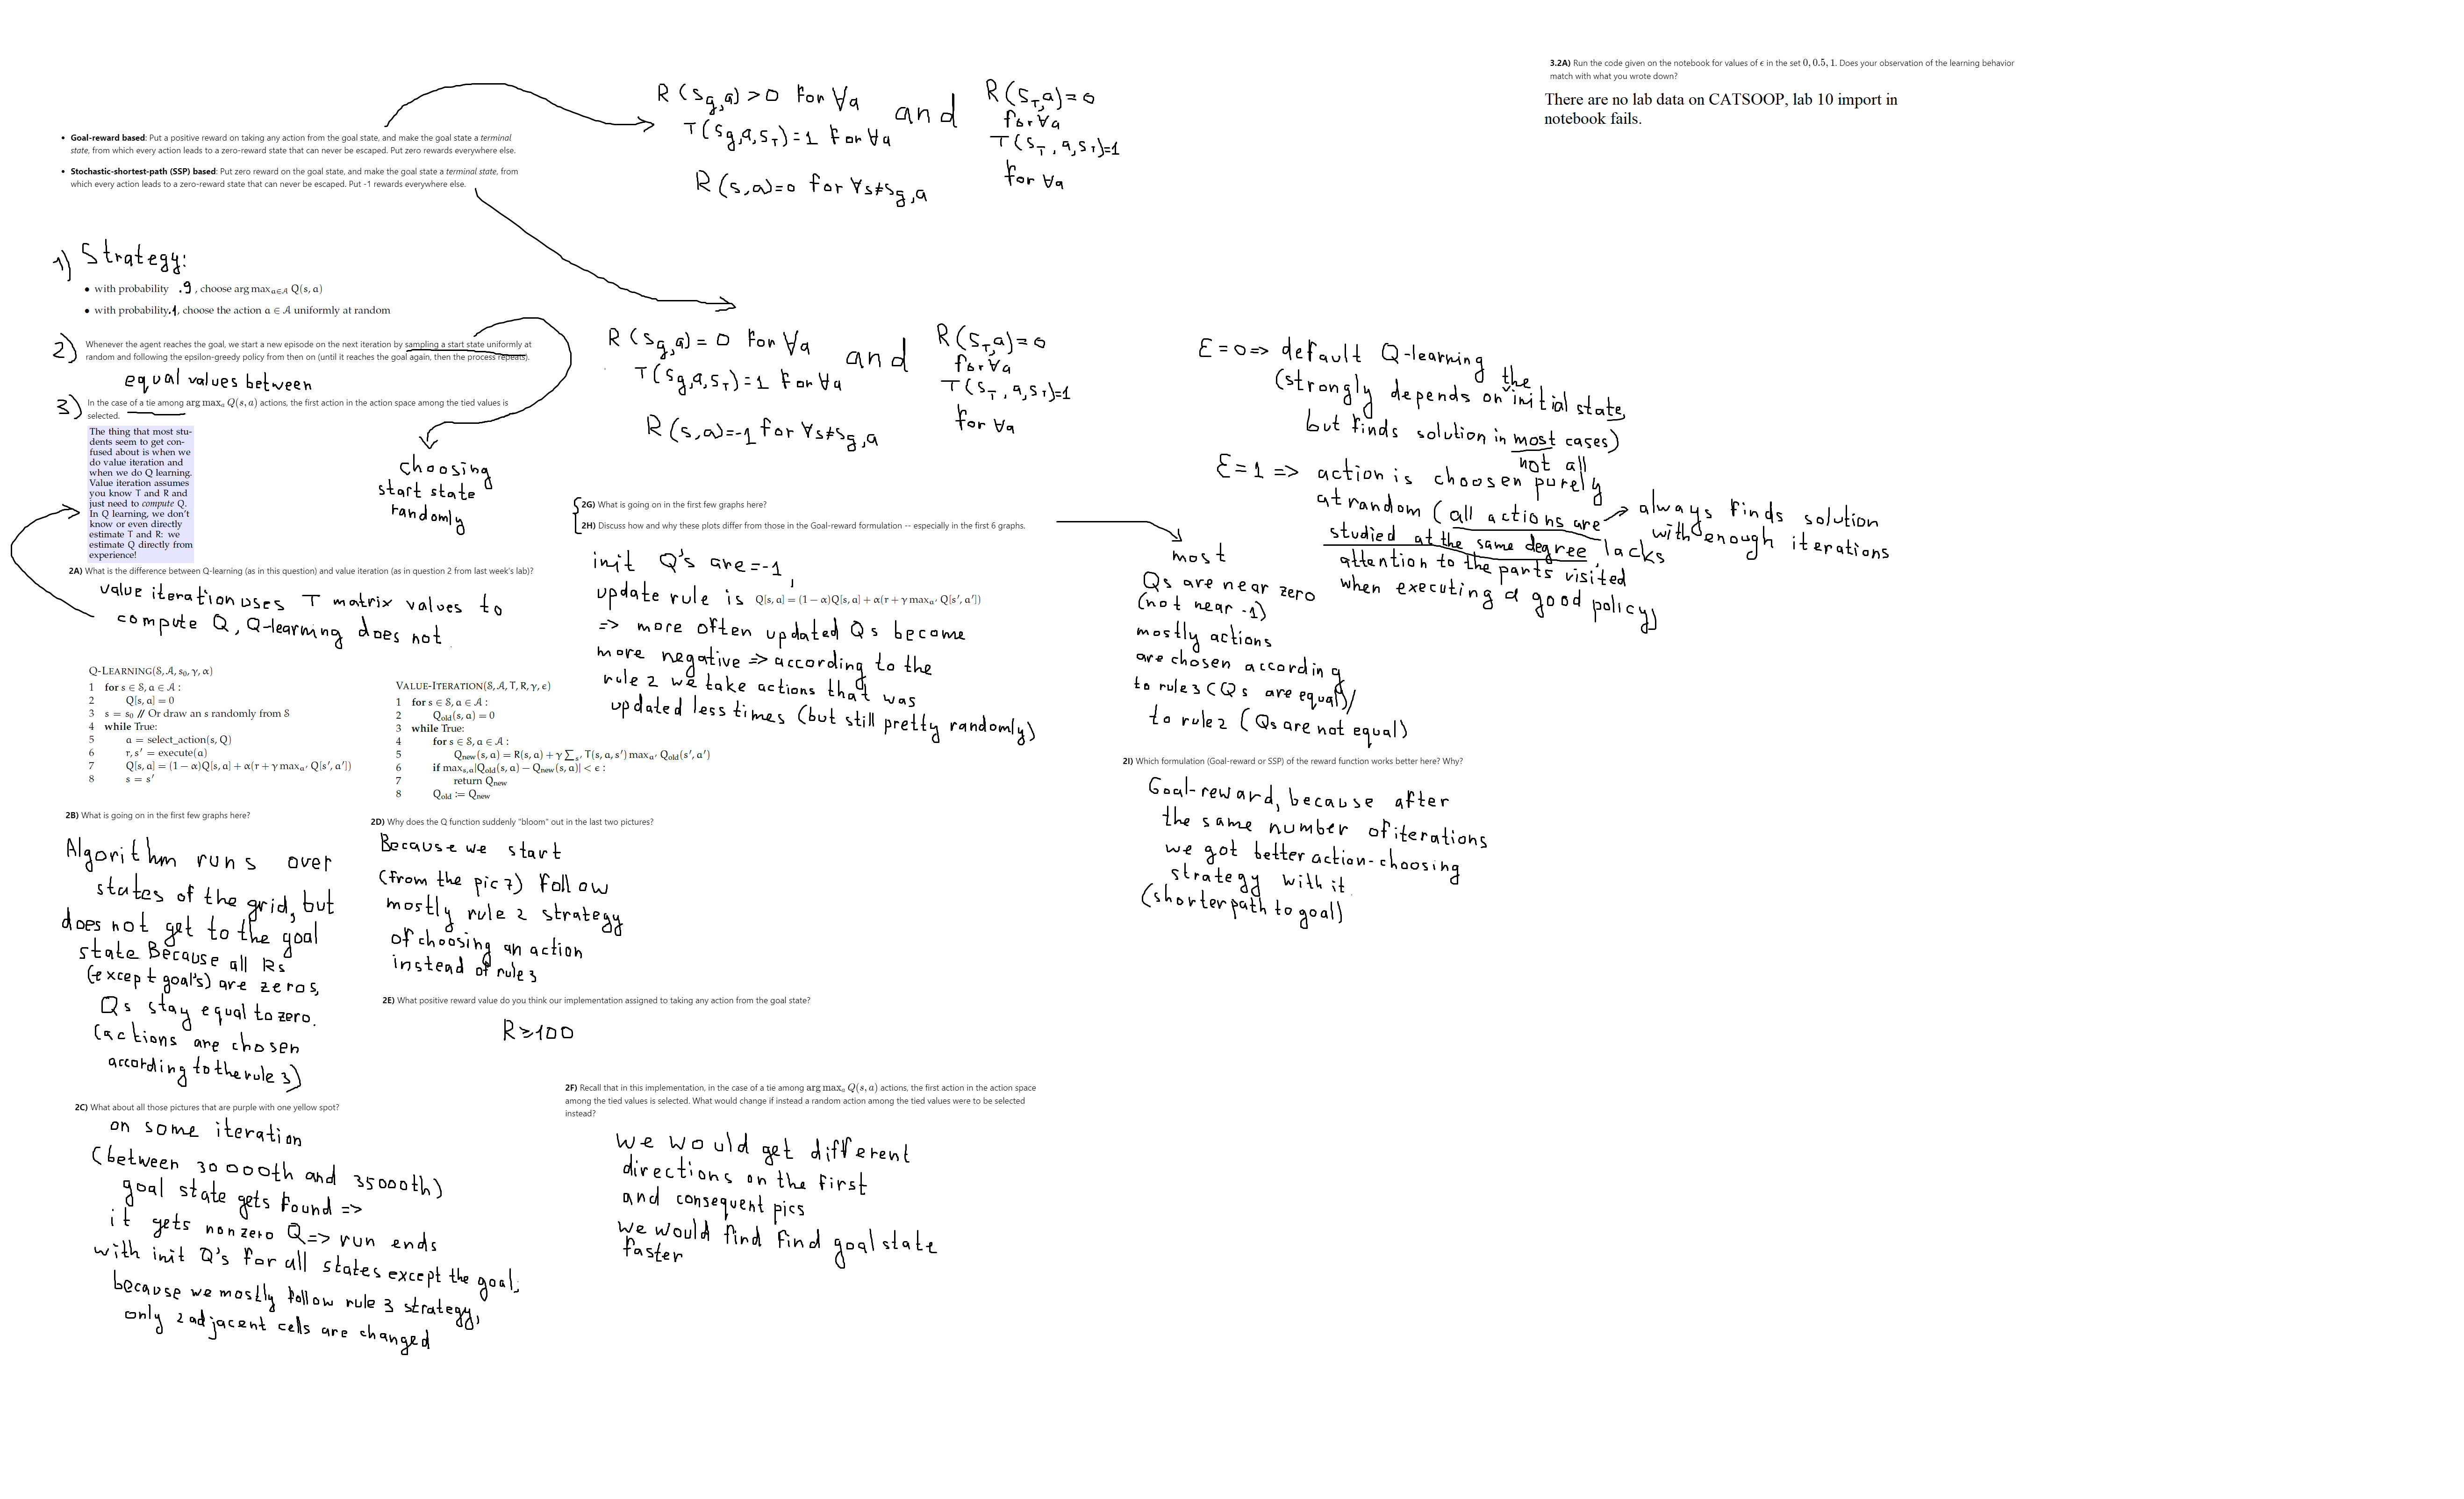 • Goal-reward based: Put a positive reward on taking any action from the goal state, and make the goal state a terminal
state, from which every action leads to a zero-reward state that can never be escaped. Put zero rewards everywhere else.
• Stochastic-shortest-path (SSP) based: Put zero reward on the goal state, and make the goal state a terminal state, from
which every action leads to a zero-reward state that can never be escaped. Put -1 rewards everywhere else.
R(sg,a)>0 for ∀a
T(sg,a,sT)=1 for ∀a
R(s,a)=0 for ∀s≠sg,a
and
R(sT,a)=0
for∀a
T(sT,a,sT)=1
for ∀a
1) Strategy:
• with probability .9, choose arg max a∈A Q(s, a)
• with probability .1, choose the action a ∈ A uniformly at random
2) Whenever the agent reaches the goal, we start a new episode on the next iteration by sampling a start state uniformly at
random and following the epsilon-greedy policy from then on (until it reaches the goal again, then the process repeats).
equal values between
3) In the case of a tie among arg maxa Q(s, a) actions, the first action in the action space among the tied values is
selected.
The thing that most stu-
dents seem to get con-
fused about is when we
do value iteration and
when we do Q learning.
Value iteration assumes
you know T and R and
just need to compute Q.
In Q learning, we don't
know or even directly
estimate T and R: we
estimate Q directly from
experience!
choosing
start state
randomly
R(sg,a)=0 for ∀a
T(sg,a,sT)=1 for ∀a
R(s,a)=-1 for ∀s≠sg,a
and
R(sT,a)=0
for∀a
T(sT,a,sT)=1
for ∀a
2A) What is the difference between Q-learning (as in this question) and value iteration (as in question 2 from last week's lab)?
value iteration uses T matrix values to
compute Q, Q-learning does not.
Q-LEARNING(S, A, s0, γ, α)
1 for s ∈ S, a ∈ A :
2 Q[s, a] = 0
3 s = s0 // Or draw an s randomly from S
4 while True:
5 a = select_action(s, Q)
6 r, s′ = execute(a)
7 Q[s, a] = (1 − α)Q[s, a] + α(r + γ maxa′ Q[s′, a′])
8 s = s′
VALUE-ITERATION(S, A, T, R, γ, ϵ)
1 for s ∈ S, a ∈ A :
2 Qold(s, a) = 0
3 while True:
4 for s ∈ S, a ∈ A :
5 Qnew(s, a) = R(s, a) + γ ∑s′ T(s, a, s′) maxa′ Qold(s′, a′)
6 if maxs,a |Qold(s, a) − Qnew(s, a)| < ϵ :
7 return Qnew
8 Qold := Qnew
2B) What is going on in the first few graphs here?
Algorithm runs over
states of the grid, but
does not get to the goal
state Because all Rs
(except goal's) are zeros,
Qs stay equal to zero.
(actions are chosen
according to the rule 3)
2C) What about all those pictures that are purple with one yellow spot?
on some iteration
(between 30000th and 35000th)
goal state gets found =>
it gets nonzero Q => run ends
with init Q's for all states except the goal;
because we mostly follow rule 3 strategy,
only 2 adjacent cells are changed
2D) Why does the Q function suddenly "bloom" out in the last two pictures?
Because we start
(from the pic 7) follow
mostly rule 2 strategy
of choosing an action
instead of rule 3
2E) What positive reward value do you think our implementation assigned to taking any action from the goal state?
R≥100
2F) Recall that in this implementation, in the case of a tie among arg maxa Q(s, a) actions, the first action in the action space
among the tied values is selected. What would change if instead a random action among the tied values were to be selected
instead?
we would get different
directions on the first
and consequent pics
we would find find goal state
faster
2G) What is going on in the first few graphs here?
2H) Discuss how and why these plots differ from those in the Goal-reward formulation -- especially in the first 6 graphs.
init Q's are =-1,
update rule is Q[s, a] = (1 − α)Q[s, a] + α(r + γ maxa′ Q[s′, a′])
=> more often updated Qs become
more negative => according to the
rule 2 we take actions that was
updated less times (but still pretty randomly)
most
Qs are near zero
(not near -1)
mostly actions
are chosen according
to rule 3 (Qs are equal)/
to rule 2 (Qs are not equal)
2I) Which formulation (Goal-reward or SSP) of the reward function works better here? Why?
Goal-reward, because after
the same number of iterations
we got better action-choosing
strategy with it.
(shorter path to goal)
Ɛ=0=> default Q-learning
(strongly depends on the initial state,
but finds solution in most cases)
not all
Ɛ=1 => action is choosen purely
at random (all actions are
studied at the same degree, lacks
attention to the parts visited
when executing a good policy)
always finds solution
with enough iterations
3.2A) Run the code given on the notebook for values of ϵ in the set 0, 0.5, 1. Does your observation of the learning behavior
match with what you wrote down?
There are no lab data on CATSOOP, lab 10 import in
notebook fails.